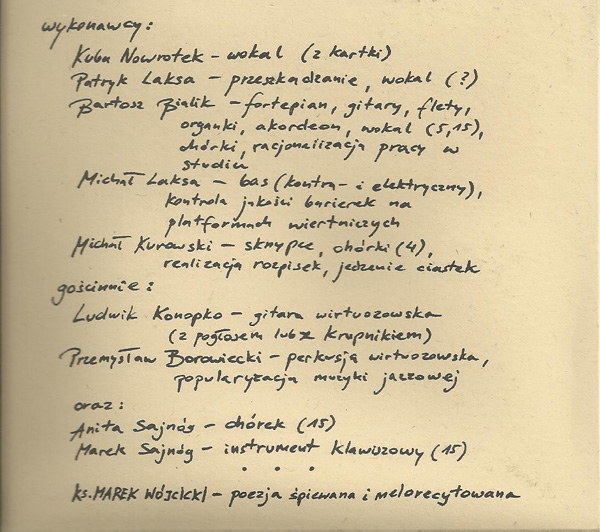 wykonawcy:
Kuba Nowrotek – wokal (z kartki)
Patryk Laksa – przeszkadzanie, wokal (?)
Bartosz Bialik – fortepian, gitary, flety,
organki, akordeon, wokal (5,15),
chórki, racjonalizacja pracy w
studiu
Michał Laksa – bas (kontra- i elektryczny),
kontrola jakości barierek na
platformach wiertniczych
Michał Kurowski – skrzypce, chórki (4),
realizacja rozpisek, jedzenie ciastek
gościnnie:
Ludwik Konopko – gitara wirtuozowska
(z pogłosem lub z Krupnikiem)
Przemysław Borowiecki – perkusją wirtuozowska,
popularyzacja muzyki jazzowej
oraz:
Anita Sajnóg – chórek (15)
Marek Sajnóg – instrument klawiszowy (15)
• • •
ks. MAREK WÓJCICKI – poezja śpiewana i melorecytowana